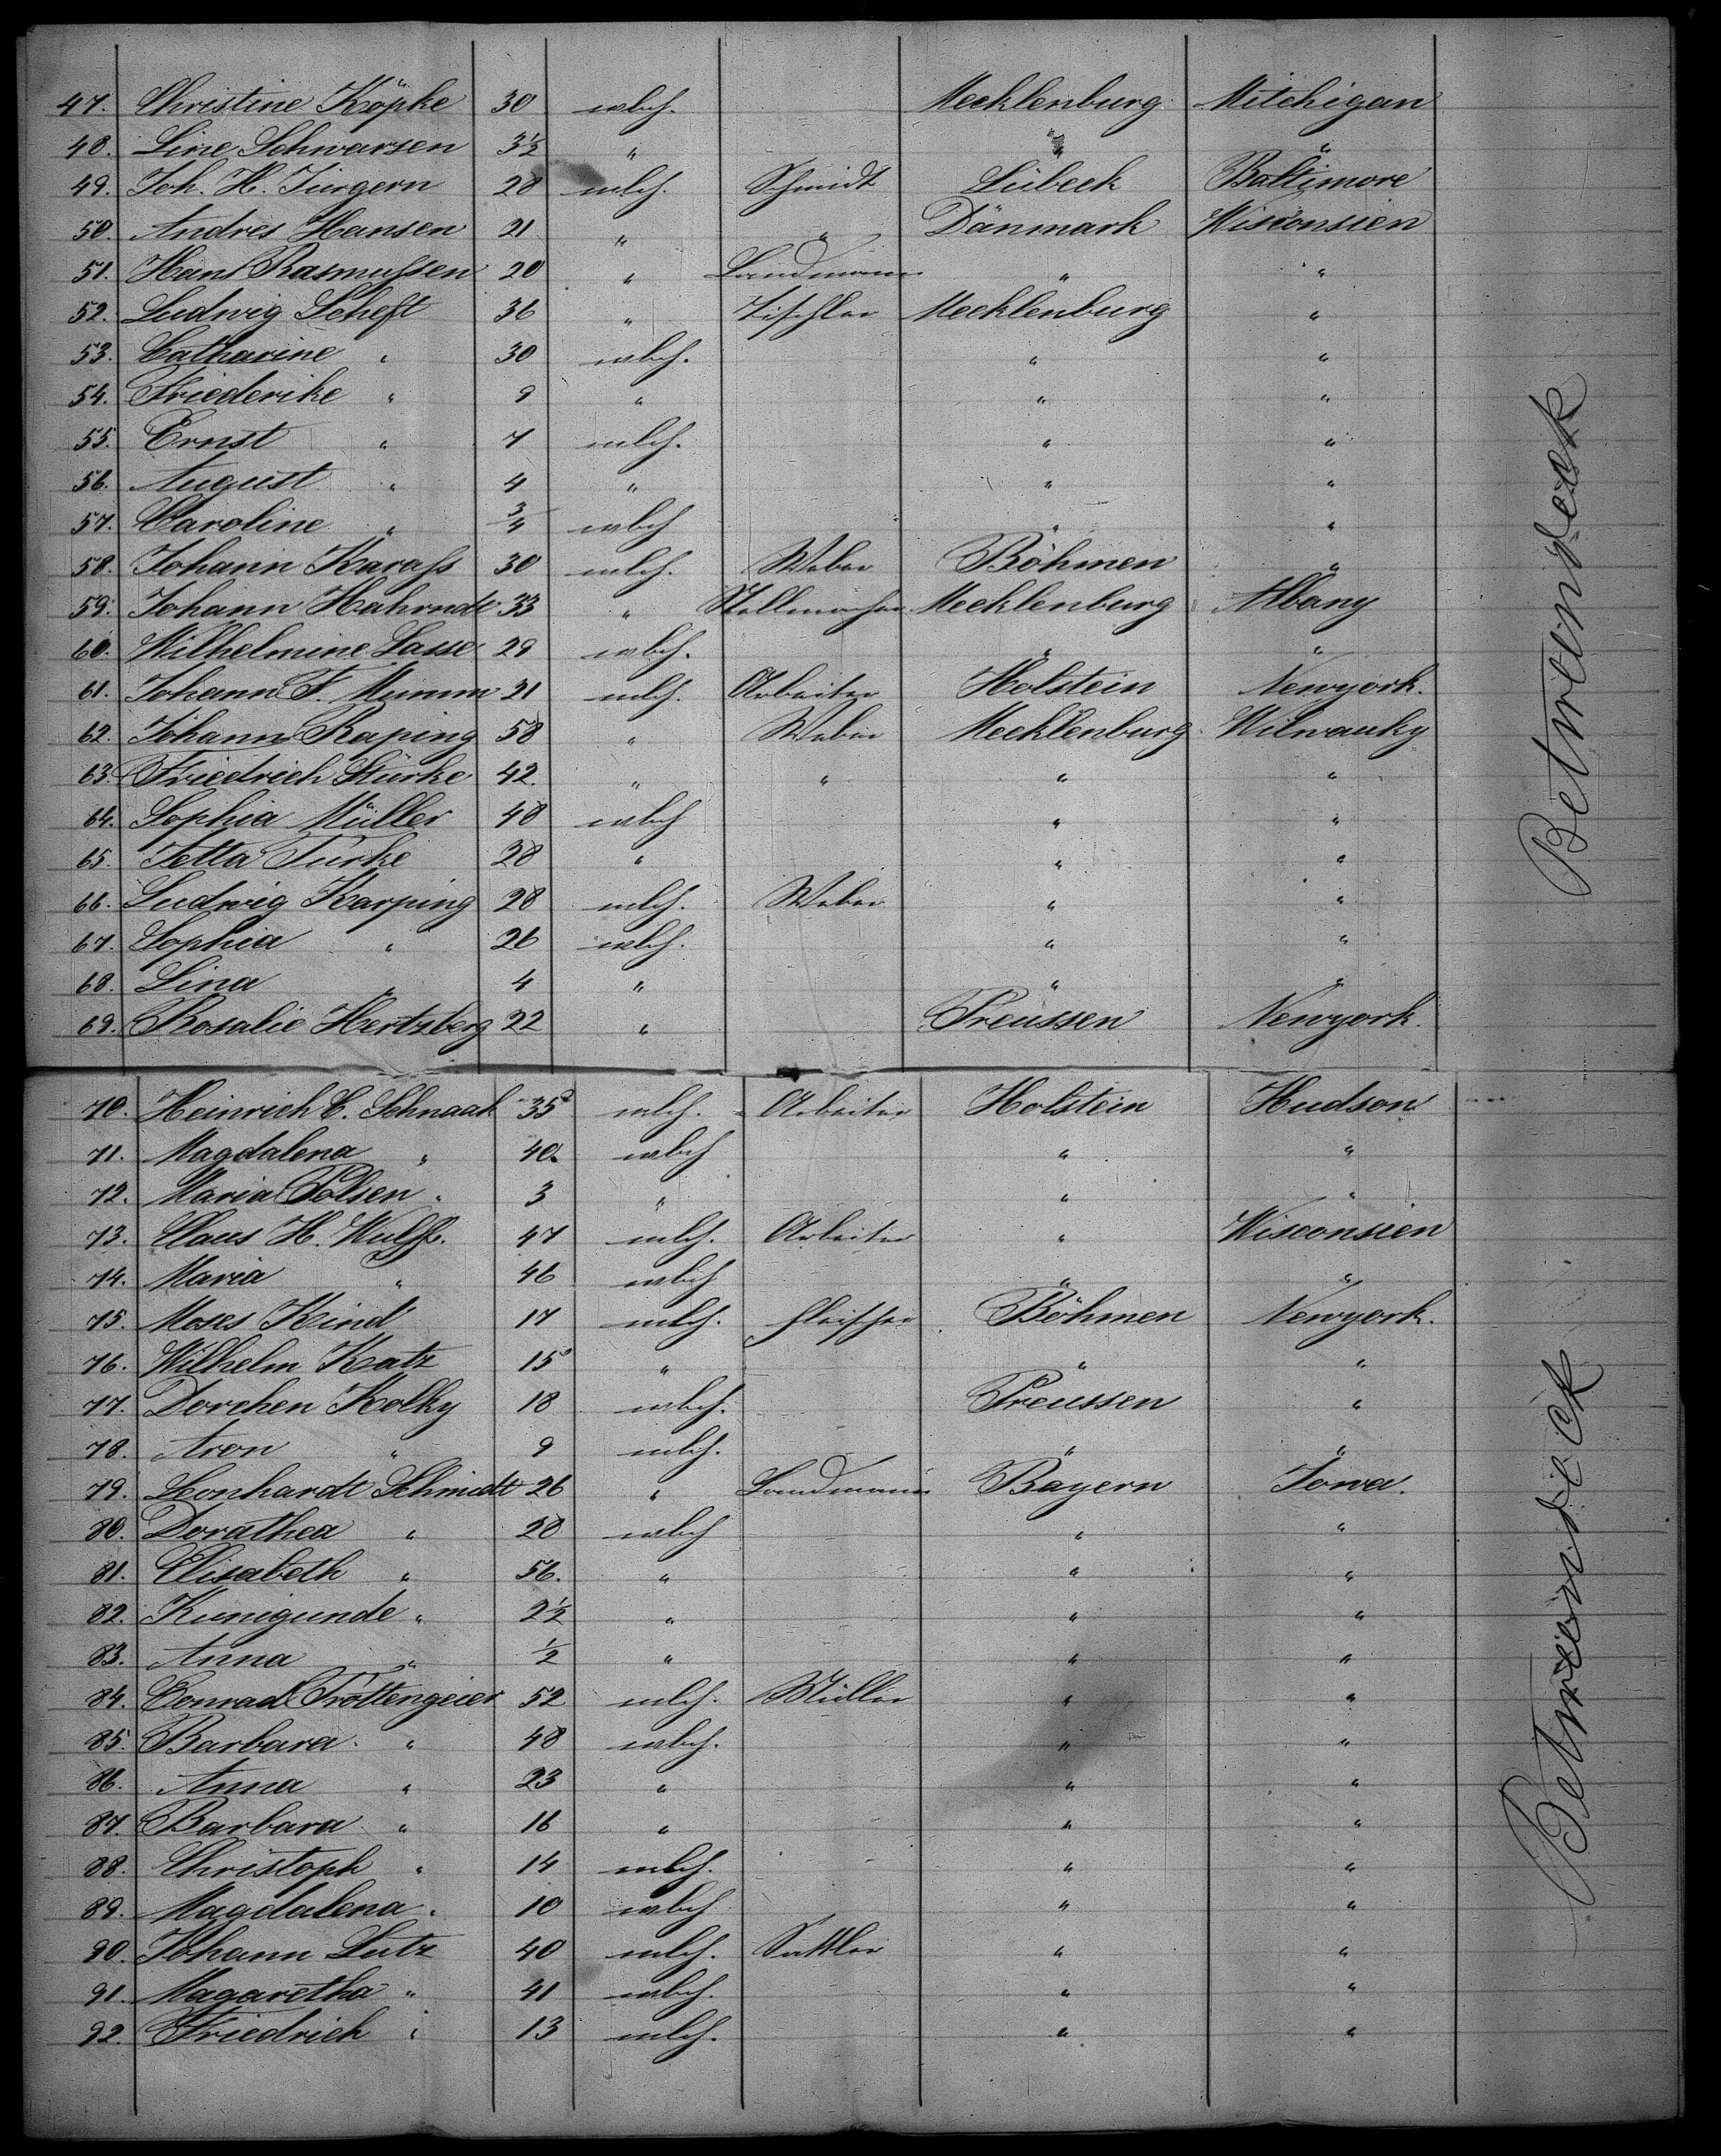 47. Christine Köpke 30 wbch. Mecklenburg Mitchigan
48. Line Schwarsen 3½ " " "
49. Joh. H. Jürgern 28 mlch. Schmidt Lübeck Baltimore
50. Andres Hansen 21 " " Dänmark Wisconsien
51. Hans Rasmussen 20 " Landmann " "
52. Ludwig Scheft 36 " Tischler Mecklenburg "
53. Catharine " 30 wbch. " "
54. Friederike " 9 " " "
55. Ernst " 7 mlch. " "
56. August " 4 " " "
57. Caroline " ¾ wbch " "
58. Johann Karass 30 mlch. Weber Böhmen "
59. Johann Hahrndt 33 " Stellmacher Mecklenburg Albany
60. Wilhelmine Lasse 29 wbch. " "
61. Johann F. Mumm 21 mlch. Arbeiter Holstein Newyork.
62. Johann Raping 58 " Weber Mecklenburg Milwauky
63. Friedrich Stürke 42. " " " "
64. Sophia Müller 48 wbch " "
65. Jetta Türke 28 " " "
66. Ludwig Karping 28 mlch. Weber " "
67. Sophia " 26 wbch. " "
68. Lina " 4 " " "
69. Rosalie Hertzberg 22 " Preussen Newyork.
70. Heinrich C. Schnaak 35 mlch. Arbeiter Holstein Hudson
71. Magdalena " 40. wbch " "
72. Maria Polsen " 3 " " "
73. Claus H. Wulff. 47 mlch. Arbeiter " Wisconsien
74. Maria " 46 wbch " "
75. Moses Kind 17 mlch. Fleischer Böhmen Newyork.
76. Wilhelm Katz 15 " " "
77. Dorchen Kolky 18 wbch. Preussen "
78. Aron " 9 mlch. " "
79. Leonhardt Schmidt 26 " Landmann Bayern Iowa.
80. Dorathea " 28 wbch " "
81. Elisabeth " 56. " " "
82. Kunigunde " 2½ " " "
83. Anna " ½ " " "
84. Conrad Tröttengeier 52 mlch. Müller " "
85. Barbara " 48 wbch. " "
86. Anna " 23 " " "
87. Barbara " 16 " " "
88. Christoph " 14 mlch. " "
89. Magdalena " 10 wbch " "
90. Johann Lutz 40 mlch. Sattler " "
91. Magaretha " 41 wbch. " "
92. Friedrich " 13 mlch. " "